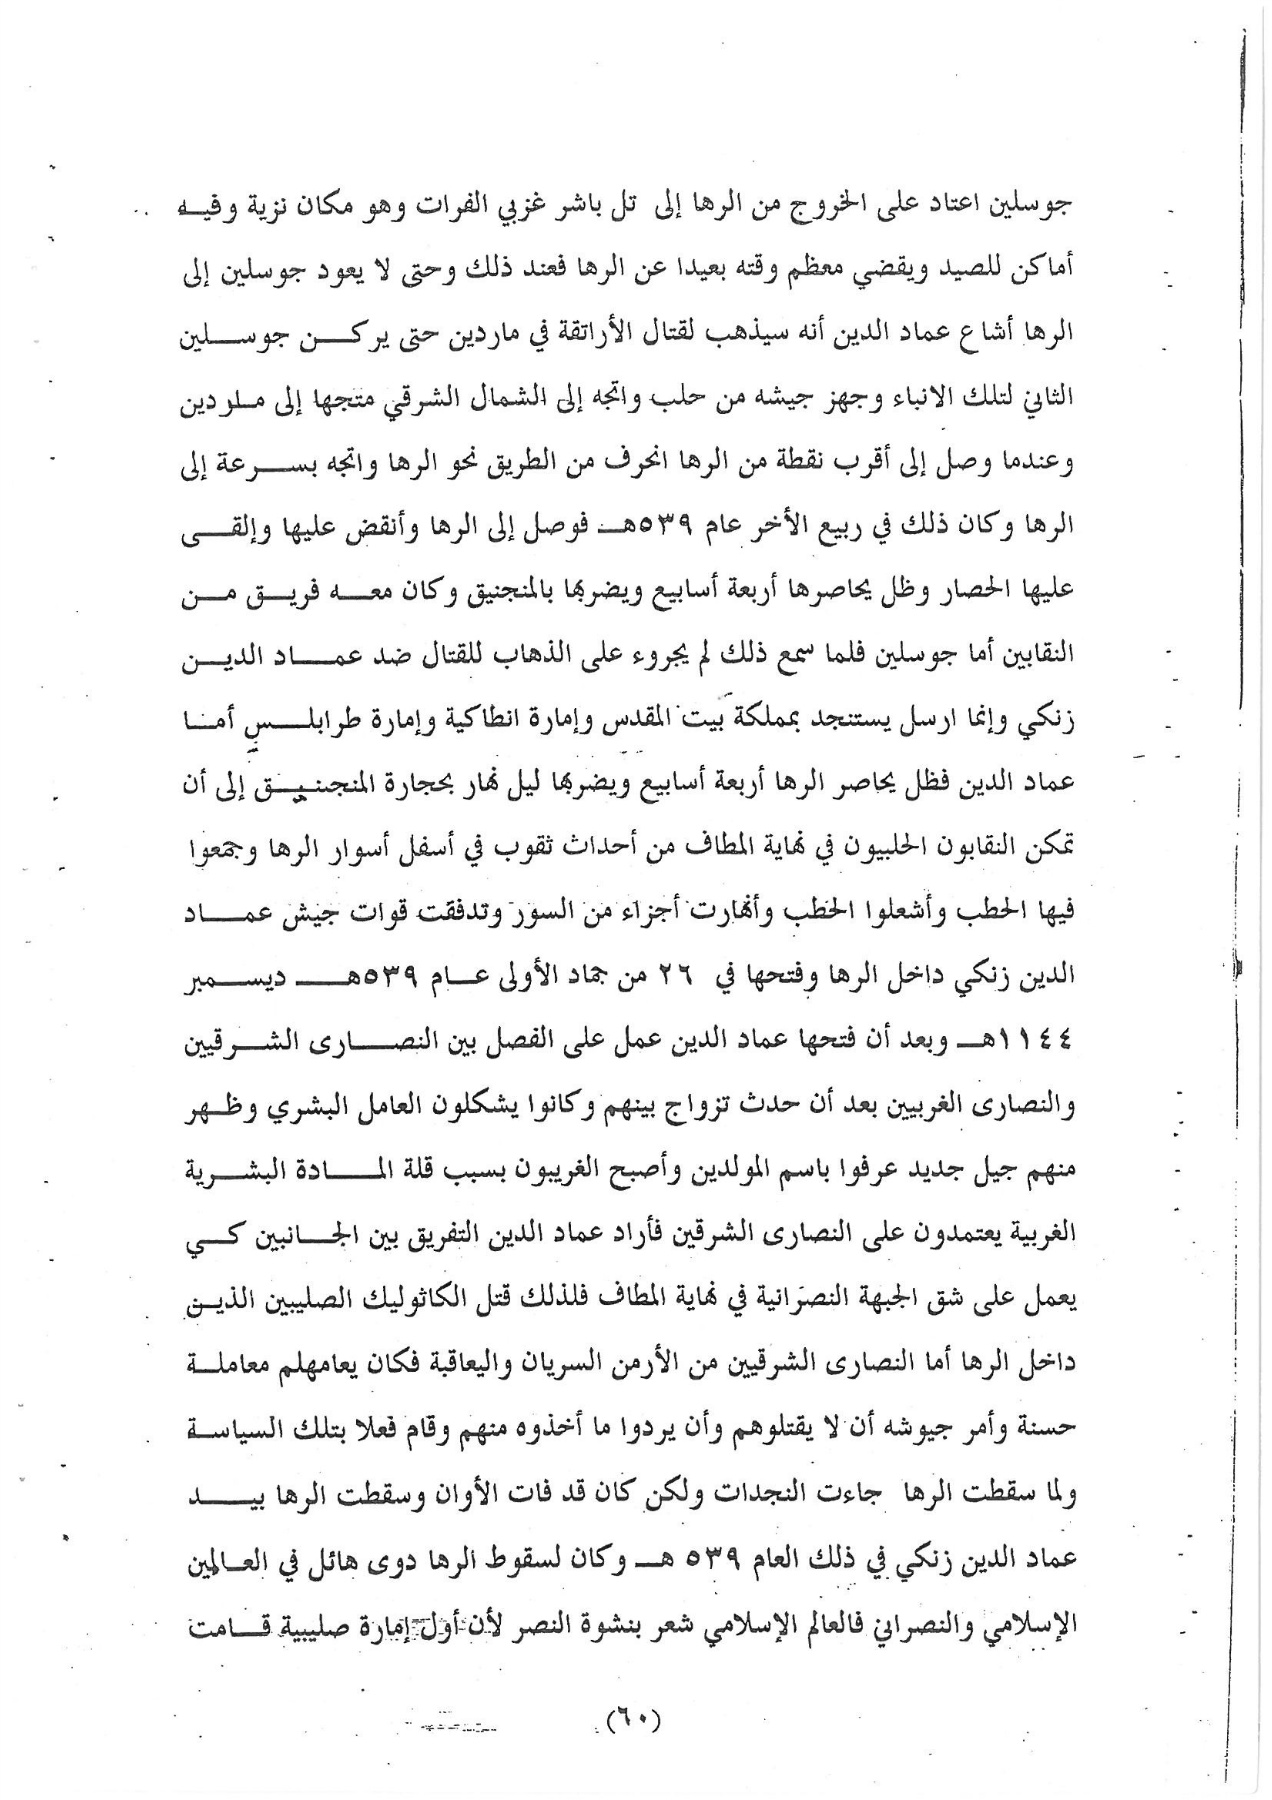 جوسلين اعتاد على الخروج من الرها إلى تل باشر غزبي الفرات وهو مكان نزية وفيه
أماكن للصيد ويقضي معظم وقته بعيدا عن الرها فعند ذلك وحتى لا يعود جوسلين إلى
الرها أشاع عماد الدين أنه سيذهب لقتال الأراتقة في ماردين حتى يركن جوسلين
الثاني لتلك الانباء وجهز جيشه من حلب واتجه إلى الشمال الشرقي متجها إلى ملردين
وعندما وصل إلى أقرب نقطة من الرها انحرف من الطريق نحو الرها واتجه بسرعة إلى
الرها وكان ذلك في ربيع الأخر عام ٥٣٩هـ فوصل إلى الرها وأنقض عليها وإلقى
عليها الحصار وظل يحاصرها أربعة أسابيع ويضربها بالمنجنيق وكان معه فريق من
النقابين أما جوسلين فلما سمع ذلك لم يجروء على الذهاب للقتال ضد عماد الدين
زنكي وإنما ارسل يستنجد بمملكة بيت المقدس وإمارة انطاكية وإمارة طرابلس أما
عماد الدين فظل يحاصر الرها أربعة أسابيع ويضربها ليل نهار بحجارة المنجنيق إلى أن
تمكن النقابون الحلبيون في نهاية المطاف من أحداث ثقوب في أسفل أسوار الرها وجمعوا
فيها الحطب وأشعلوا الحطب وأنهارت أجزاء من السور وتدفقت قوات جيش عماد
الدين زنكي داخل الرها وفتحها في ٢٦ من جماد الأولى عام ٥٣٩هـ ديسمبر
١١٤٤هـ وبعد أن فتحها عماد الدين عمل على الفصل بين النصارى الشرقيين
والنصارى الغربيين بعد أن حدث تزواج بينهم وكانوا يشكلون العامل البشري وظهر
منهم جيل جديد عرفوا باسم المولدين وأصبح الغريبون بسبب قلة المادة البشرية
الغربية يعتمدون على النصارى الشرقين فأراد عماد الدين التفريق بين الجانبين كي
يعمل على شق الجبهة النصرانية في نهاية المطاف فلذلك قتل الكاثوليك الصليبين الذين
داخل الرها أما النصارى الشرقيين من الأرمن السريان واليعاقبة فكان يعامهلم معاملة
حسنة وأمر جيوشه أن لا يقتلوهم وأن يردوا ما أخذوه منهم وقام فعلا بتلك السياسة
ولما سقطت الرها جاءت النجدات ولكن كان قد فات الأوان وسقطت الرها بيد
عماد الدين زنكي في ذلك العام ٥٣٩ هـ وكان لسقوط الرها دوى هائل في العالمين
الإسلامي والنصراني فالعالم الإسلامي شعر بنشوة النصر لأن أول إمارة صليبية قامت
(٦٠)